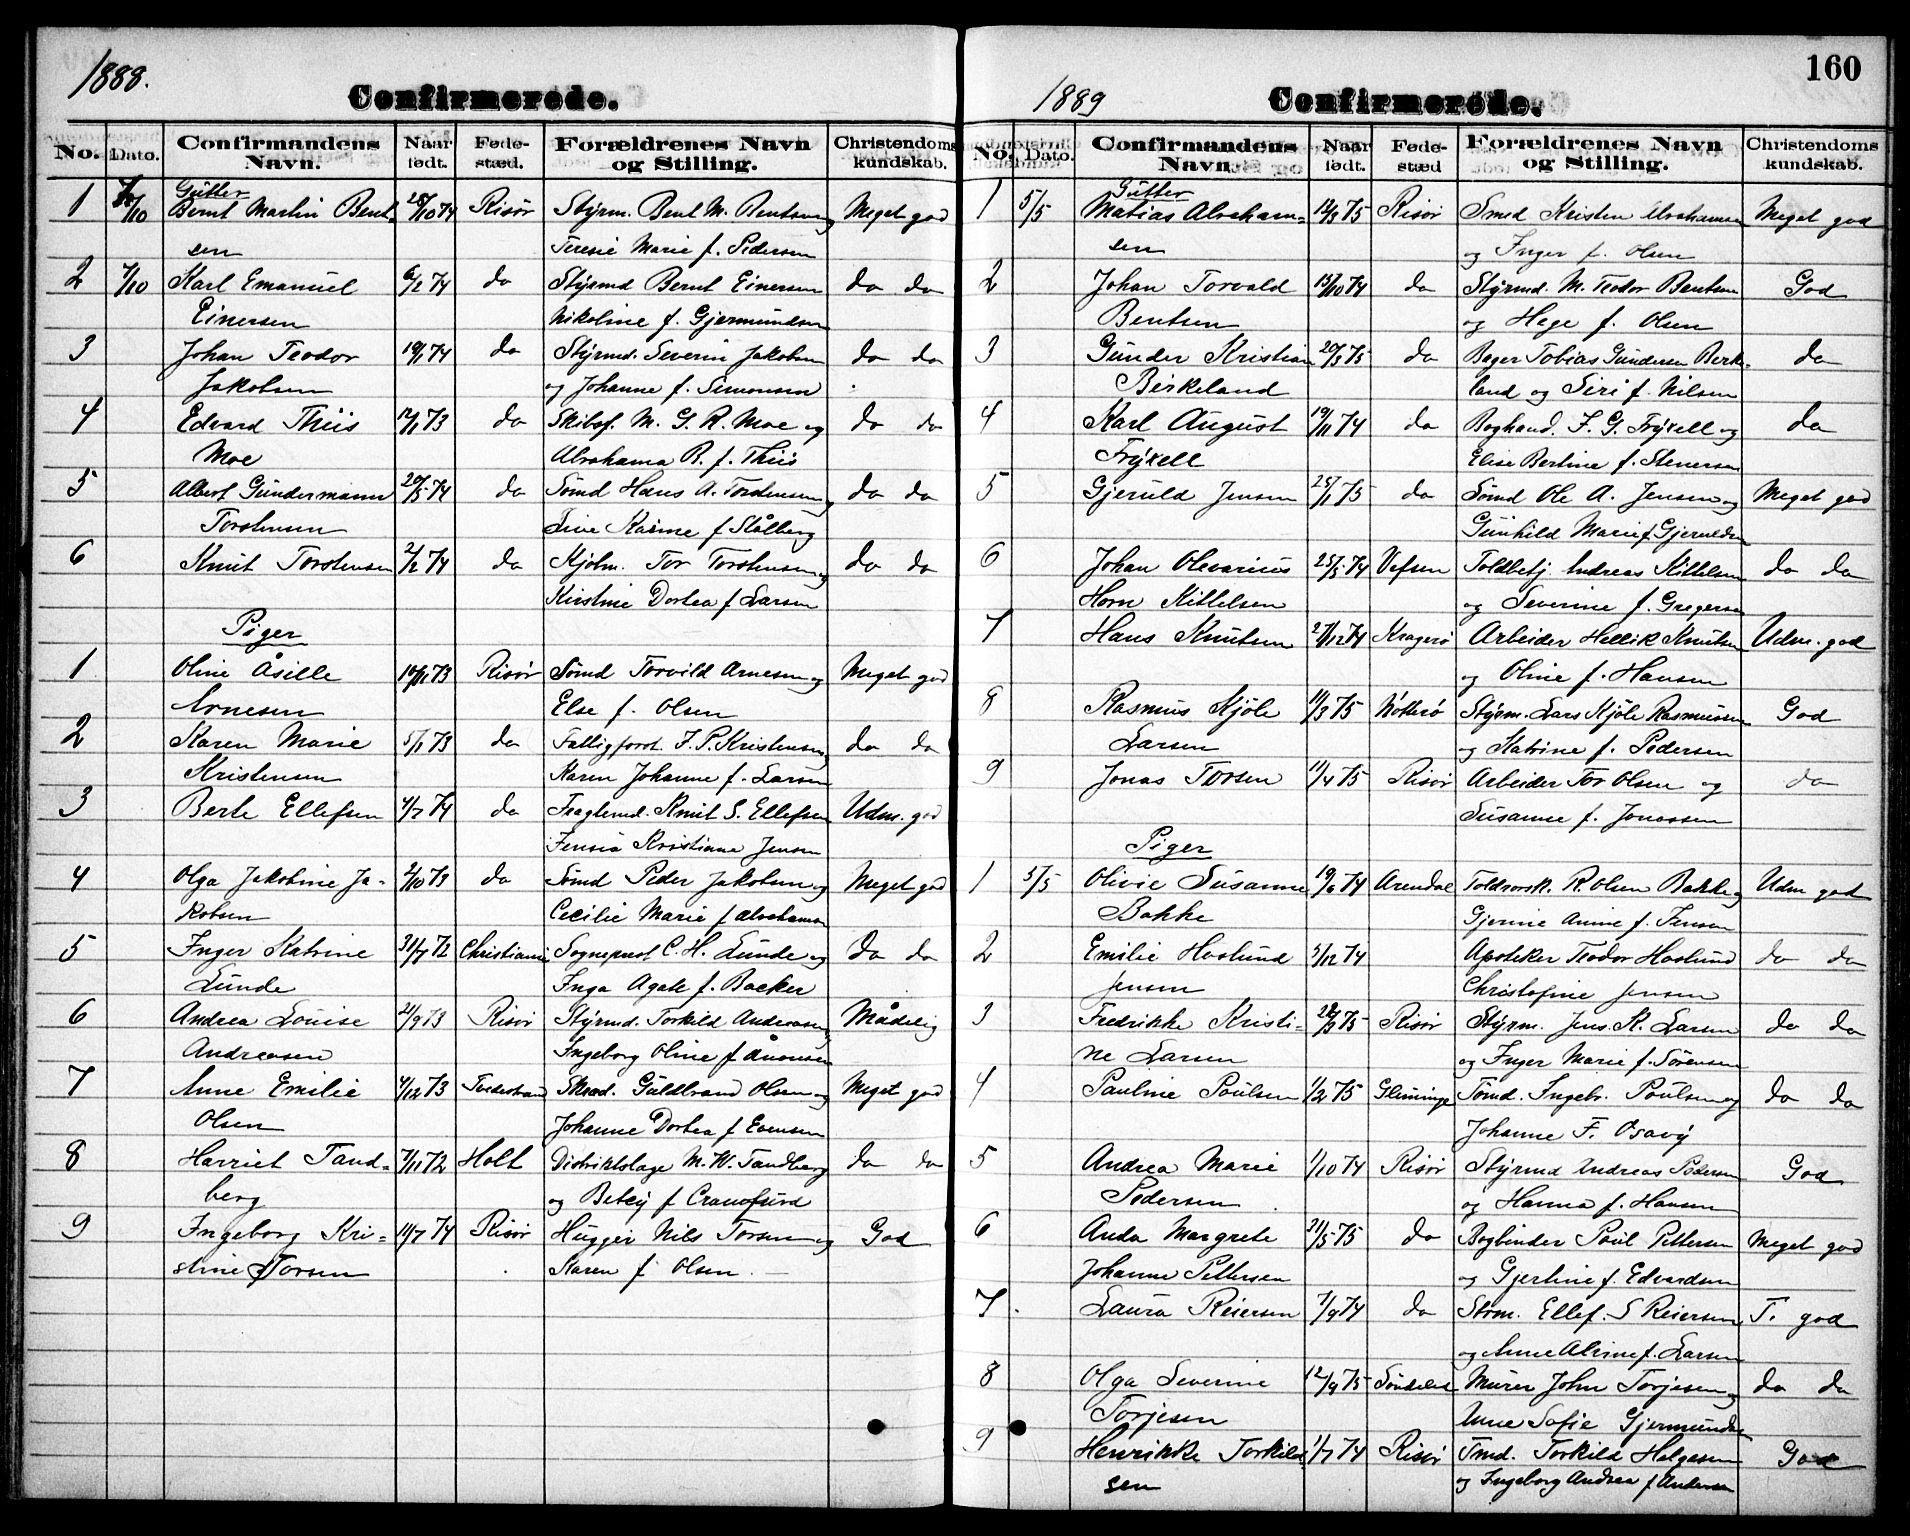 1888.
Confirmerede.
No. Dato. Confirmandens Navn. Naar født. Føde-stæd. Forældrenes Navn og Stilling. Christendoms kundskab.
Gutter
1 7/10 Bernt Martin Bent- 28/10 74 Risør Styrm. Bent M. Bentsen og Meget god
sen Teresie Marie f. Pedersen
2 7/10 Karl Emanuel 6/2 74 do Styrmd Bernt Einersen do do
Einersen Nikoline f. Gjermundsen
3 Johan Teodor 19/1 74 do Styrmd. Severin Jakobsen do do
Jakobsen og Johanne f. Simonsen
4 Edvard Thiis 73 do Skibsf. M. G. R. Moe og do do
Moe Abrahama B. f. Thiis
5 Albert Gundermann 20/5 74 do Sømd Hans A. Torstensen og do do
Torstensen Line Karine f Stålberg
6 Knut Torstensen 2/2 74 do Kjøbm. Tor Torstensen og do do
Kirstine Dortea f Larsen
Piger
1 Oline Åsille 73 Risør Sømd Torvild Arnesen og Meget god
Arnesen Else f. Olsen
2 Karen Marie 5/1 73 do Fattigforst. J. P. Kristensen do do
Kristensen Karen Johanne f. Larsen
3 Berte Ellefsen 4/7 74 do Fragtemd. Knut S. Ellefsen Udm. god
Kristiane Jensen
4 Olga Jakobine Ja- 2/10 73 do Sømd Peder Jakobsen og Meget god
kobsen Cecilie Marie f Abrahamsen
5 Inger Katrine 31/7 72 Christiania Sogneprest C. H. Lunde og do do
Lunde Inga Agate f. Backer
6 Andrea Louise 21/9 73 Risør Styrmd. Torkild Andreasen Mådelig
Andreasen Ingeborg Oline f Aanonsen
7 Anne Emilie 4/12 73 Tvedestrand Guldbrand Olsen og Meget god
Olsen Johanne Dortea f Evensen
8 Harriet Tand- 7/11 72 Holt Distriktslæge M. W. Tandberg do do
berg og Betcy f Crawfurd
9 Ingeborg Kri- 11/7 74 Risør Hugger Nils Torsen og God
stine Torsen Karen f Olsen
160
1889
Confirmerede.
No. Dato. Confirmandens Navn. Naar født. Føde-stæd Forældrenes Navn og Stilling. Christendoms kundskab.
Gutter
1 5/5 Matias Abraham- 14/3 75 Risør Smed Kristen Abrahamsen Meget god
sen og Inger f. Olsen
2 Johan Torvald 13/10 74 do Styrmd. M. Teodor Bentsen God
Bentsen og Hege f. Olsen
3 Gunder Kristian 20/3 75 do Bager Tobias Gundersen Birke- do
Birkeland land og Siri f. Nilsen
4 Karl August 19/11 74 do Boghand. F. G. Fryxell og do
Fryxell Elise Bertine f. Stenersen
5 Gjeruld Jensen 25/1 75 do Sømd Ole A. Jensen og Meget god
Gunhild Marie f Gjeruldsen
6 Johan Olevarius 25/5 74 Vefsen Toldbetj Andreas Kittelsen do do
Horn Kittelsen og Severine f. Gregersen
7 Hans Knutsen 27/12 74 Kragerø Arbeider Hellik Knutsen Udm. god
og Oline f. Hansen
8 Rasmus Kjøle 11/3 75 Nøtterø Styrm. Lars Kjøle Rasmussen God
Larsen og Katrine f. Pedersen
9 Jonas Torsen 11/4 75 Risør Arbeider Tor Olsen og do
Susanne f. Jonassen
Piger
1 5/5 Olivie Susanne 19/6 74 Arendal Toldrorsk. R. Olsen Bakke og Udm god
Bakke Gjerine Amine f. Jensen
2 Emilie Haslund 5/12 74 Apoteker Teodor Haslund do do
Jensen Christofine Jensen
3 Fredrikke Kristi- 28/3 75 Risør Styrm. Jens K. Larsen do do
ne Larsen og Inger Marie f. Sørensen
4 Pauline Poulsen 1/2 75 Tømd. Ingebr. Poulsen og do do
Johanne F.
5 Andrea Marie 1/10 74 Risør Styrmd Andreas Pedersen God
Pedersen og Hanna f. Hansen
6 Anda Margrete 31/5 75 do Bogbinder Poul Pettersen Meget god
Johanne Pettersen og Gjertine f. Edvardsen
7 Laura Reiersen 7/9 74 do Ellef. S Reiersen T. god
og Anne Alvine f. Larsen
8 Olga Severine 12/9 75 Søndeled Murer John Torjesen og do do
Torjesen Anne Sofie Gjermundsen
9 Henrikke Torkild 1/7 74 Risør Tmd. Torkild Helgesen God
sen og Ingeborg Andrea f Andersen